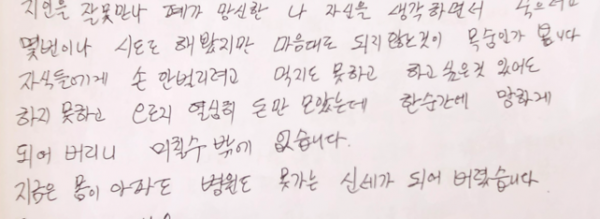 지인을 잘못만나 폐가 망신한 나 자신을 생각하면서 죽으려고
몇번이나 시도도 해 봤지만 마음대로 되지 않는것이 목숨인가 봅니다
자식들에게 손 안벌리려고 먹지도 못하고 하고 싶은것 있어도
하지 못하고 오르지 열심히 돈만 모았는데 한순간에 망하게
되어 버리니 미칠수 밖에 없습니다.
지금은 몸이 아파도 병원도 못가는 신세가 되어 버렸습니다